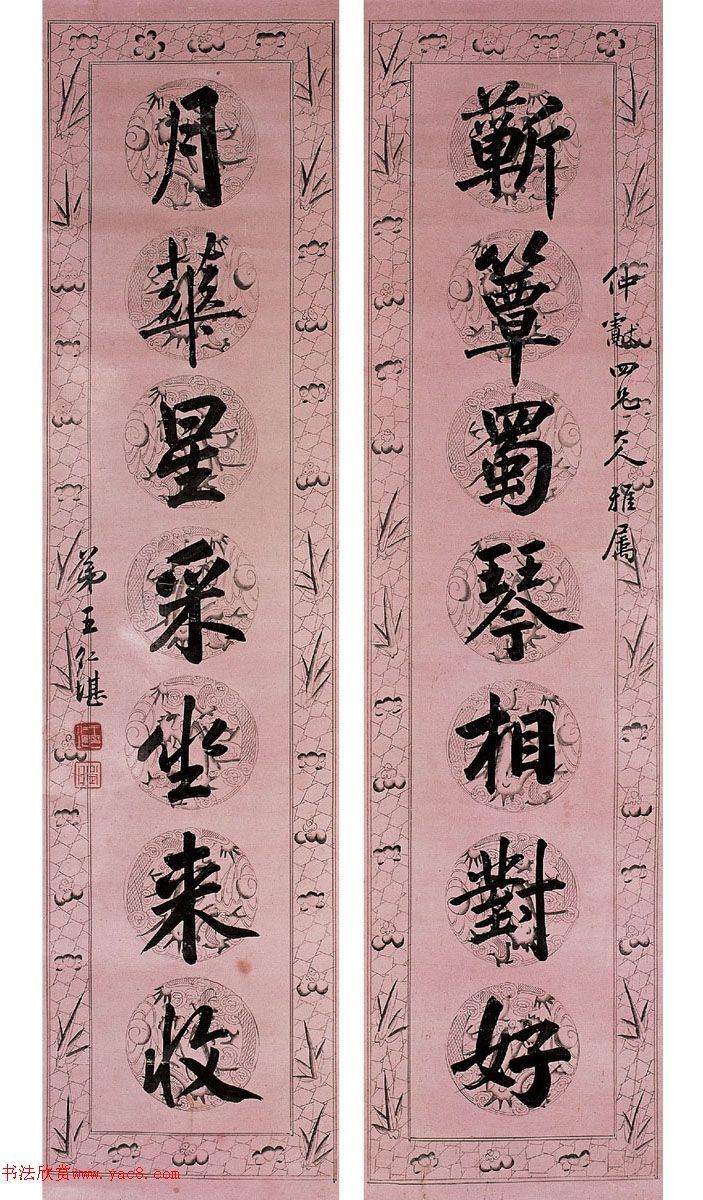 蘄簟蜀琴相對好
仲獻四兄大人雅屬
月華星采坐來收
弟王仁堪
书法欣赏www.yac8.com